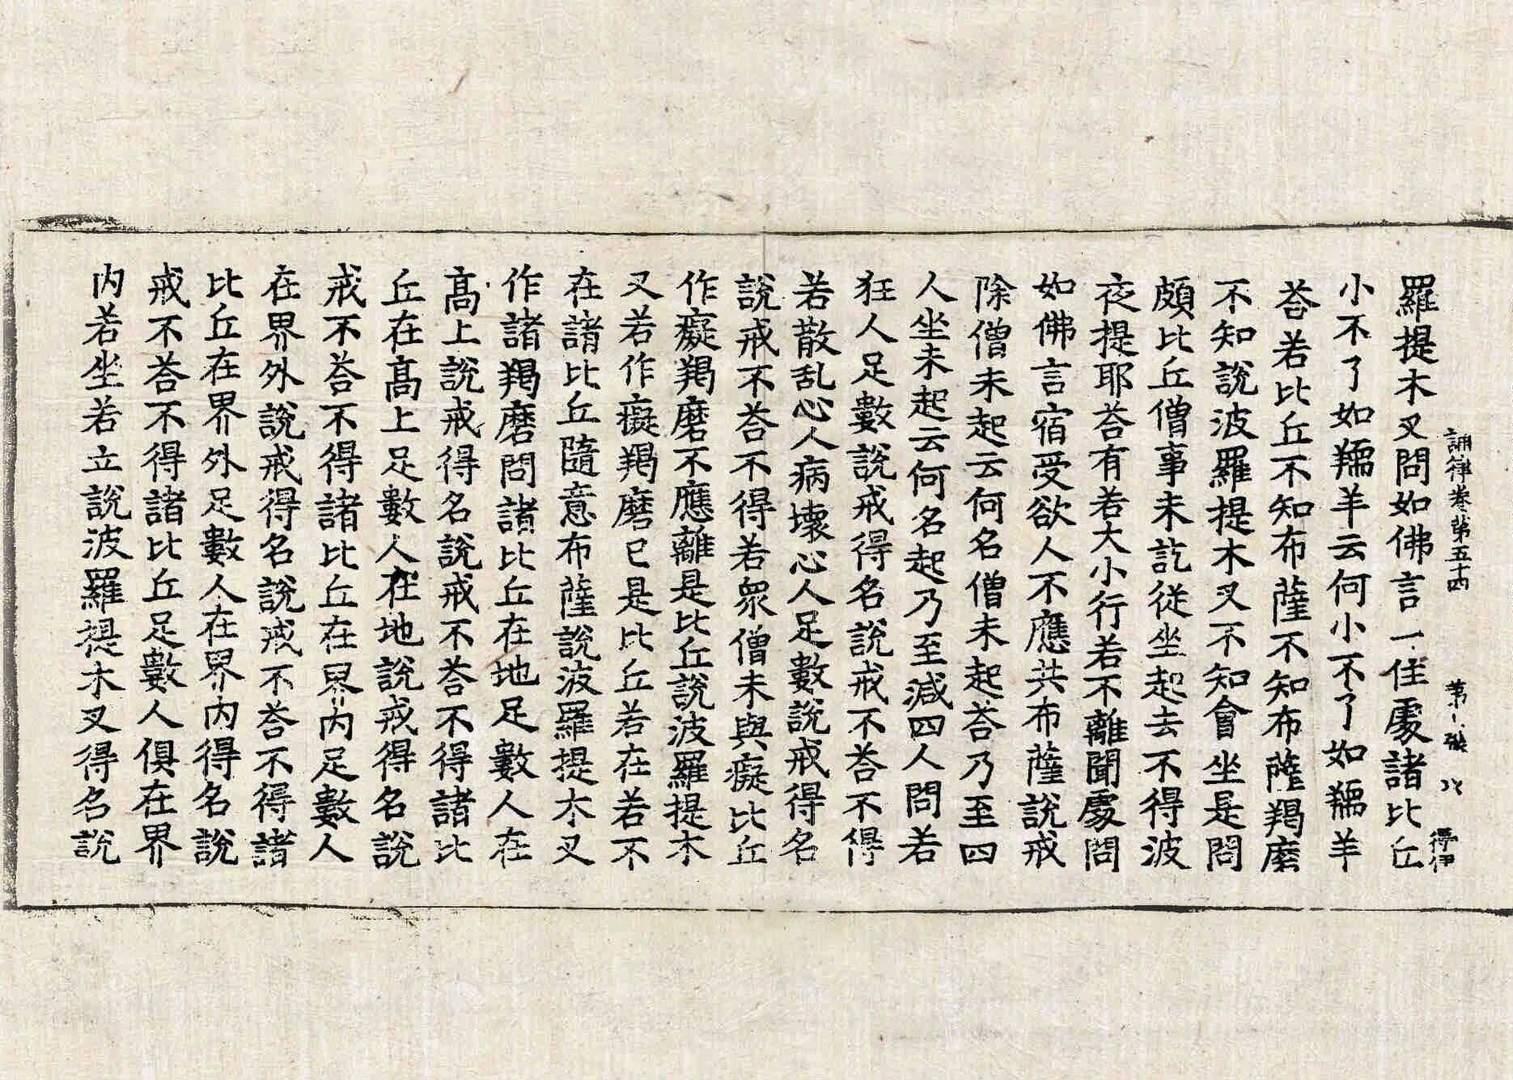 誦律卷第五十四 第 張
羅提木叉問如佛言一住處諸比丘
小不了如羺羊云何小不了如羺羊
荅若比丘不知布薩不知布薩羯磨
不知說波羅提木叉不知會坐是問
頗比丘僧事未訖從坐起去不得波
夜提耶荅有若大小行若不離聞處問
如佛言宿受欲人不應共布薩說戒
除僧未起云何名僧未起荅乃至四
人坐未起云何名起乃至減四人問若
狂人足數說戒得名說戒不荅不得
若散乱心人病壞心人足數說戒得名
說戒不荅不得若衆僧未與癡比丘
作癡羯磨不應離是比丘說波羅提木
叉若作癡羯磨已是比丘若在若不
在諸比丘隨意布薩說波羅提木叉
作諸羯磨問諸比丘在地足數人在
髙上說戒得名說戒不荅不得諸比
丘在髙上足數人在地說戒得名說
戒不荅不得諸比丘在界內足數人
在界外說戒得名說戒不荅不得諸
比丘在界外足數人在界內得名說
戒不荅不得諸比丘足數人俱在界
內若坐若立說波羅提木叉得名說